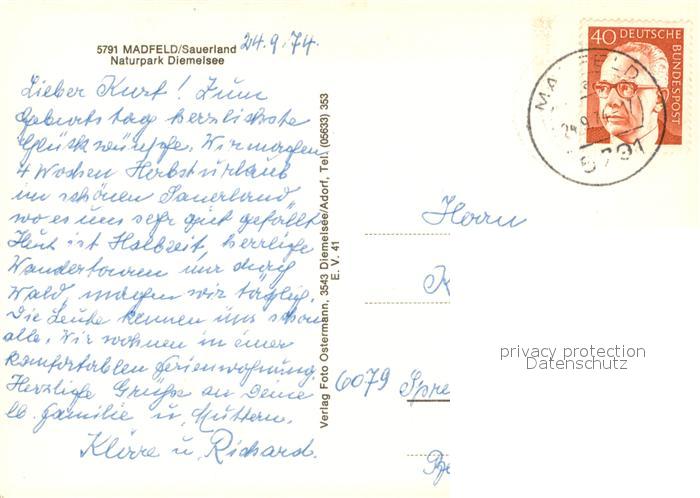 5791 MADFELD/Sauerland
Naturpark Diemelsee
24.9.74.
Lieber Kurt! Zum
Geburtstag herzlichste
Glückwünsche. Wir machen
4 Wochen Herbsturlaub
im schönen Sauerland,
wo es uns sehr gut gefällt.
Heut ist Halbzeit, herrliche
Wandertouren nur durch
Wald, machen wir täglich.
Die Leute kennen uns schon
alle. Wir wohnen in einer
komfortablen Ferienwohnung.
Herzliche Grüße an Deine
lb. Familie u. Muttern.
Kläre u. Richard.
Verlag Foto Ostermann, 3543 Diemelsee/Adorf, Tel. (05633) 353
E. V. 41
40 DEUTSCHE
BUNDESPOST
MADFELD
24.9.74
5791
Herrn
K
6079 Spre
privacy protection
Datenschutz